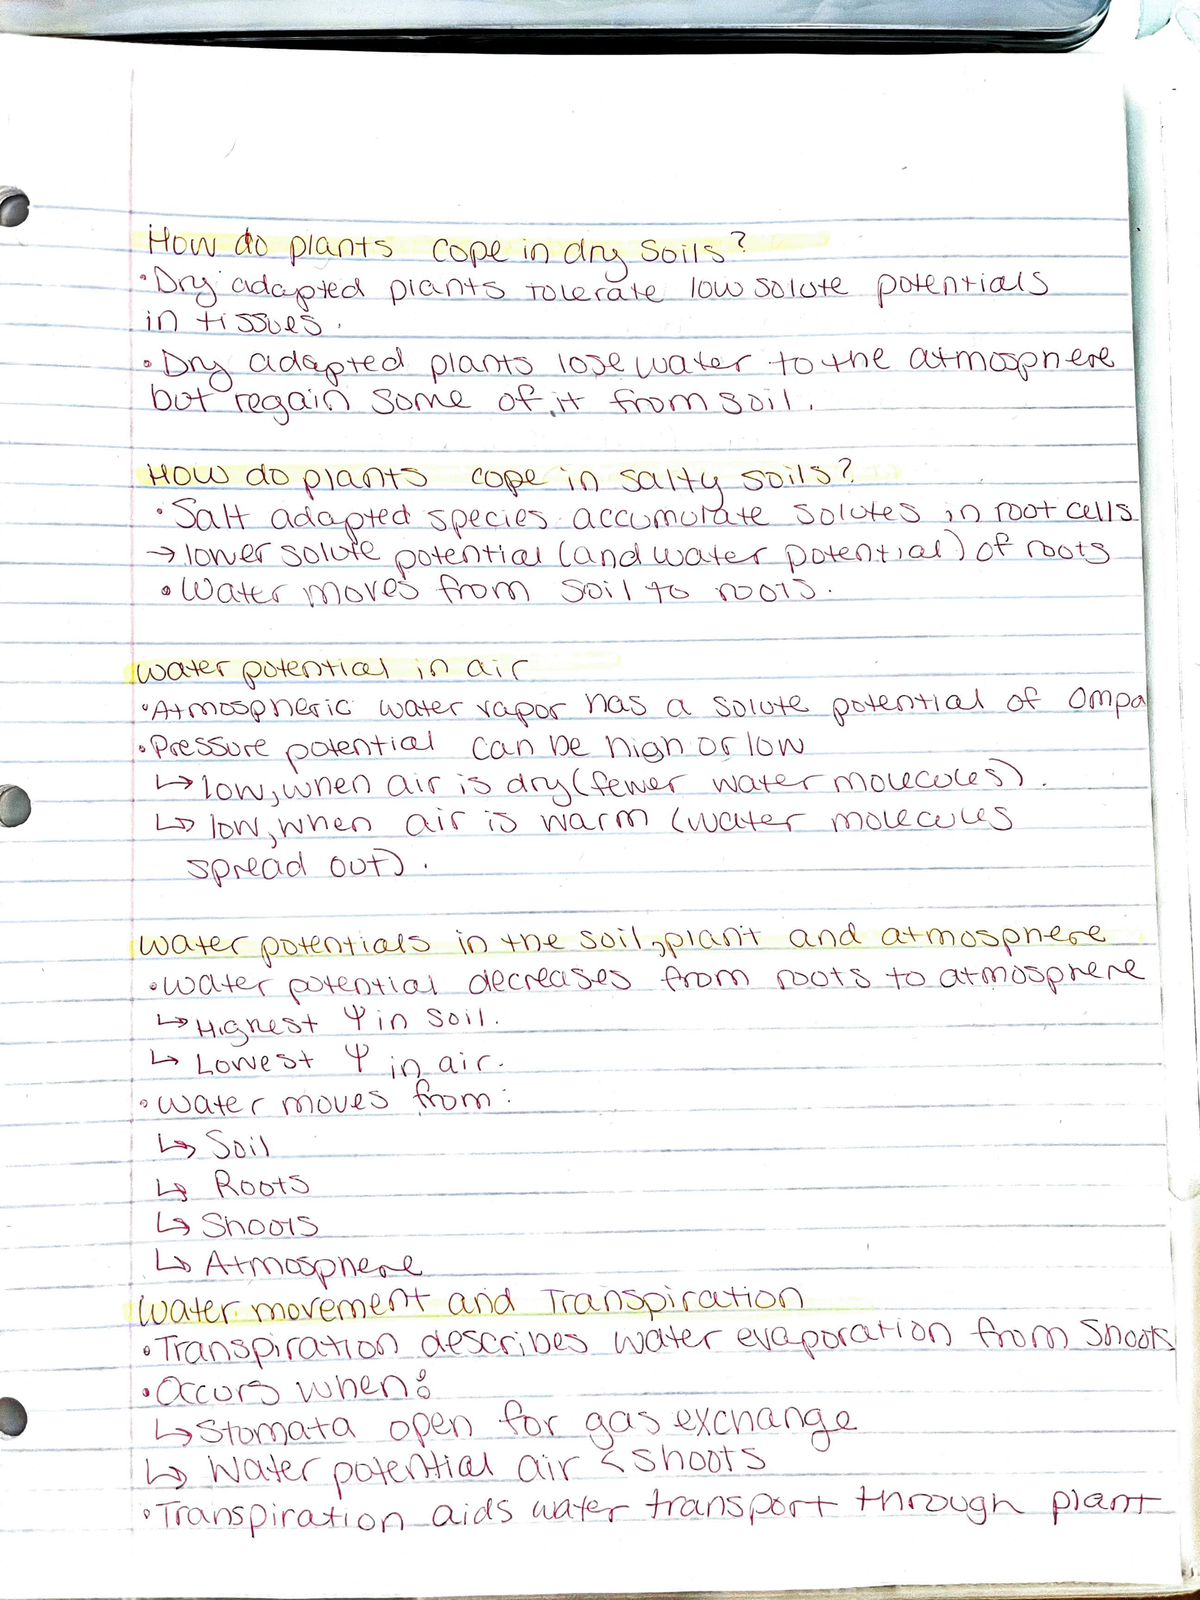 How do plants cope in dry soils?
• Dry adapted plants tolerate low solute potentials
in tissues.
• Dry adapted plants lose water to the atmosphere
but regain some of it from soil.
How do plants cope in salty soils?
• Salt adapted species accumulate solutes in root cells
→ lower solute potential (and water potential) of roots
• Water moves from soil to roots.
Water potential in air
• Atmospheric water vapor has a solute potential of 0mpa
• Pressure potential can be high or low
↳ low, when air is dry (fewer water molecules).
↳ low, when air is warm (water molecules
spread out).
Water potentials in the soil, plant and atmosphere
• Water potential decreases from roots to atmosphere
↳ Highest Ψ in soil.
↳ Lowest Ψ in air.
• Water moves from:
↳ Soil
↳ Roots
↳ Shoots
↳ Atmosphere
Water movement and Transpiration
• Transpiration describes water evaporation from Shoots
• Occurs when:
↳ Stomata open for gas exchange
↳ Water potential air < shoots
• Transpiration aids water transport through plant